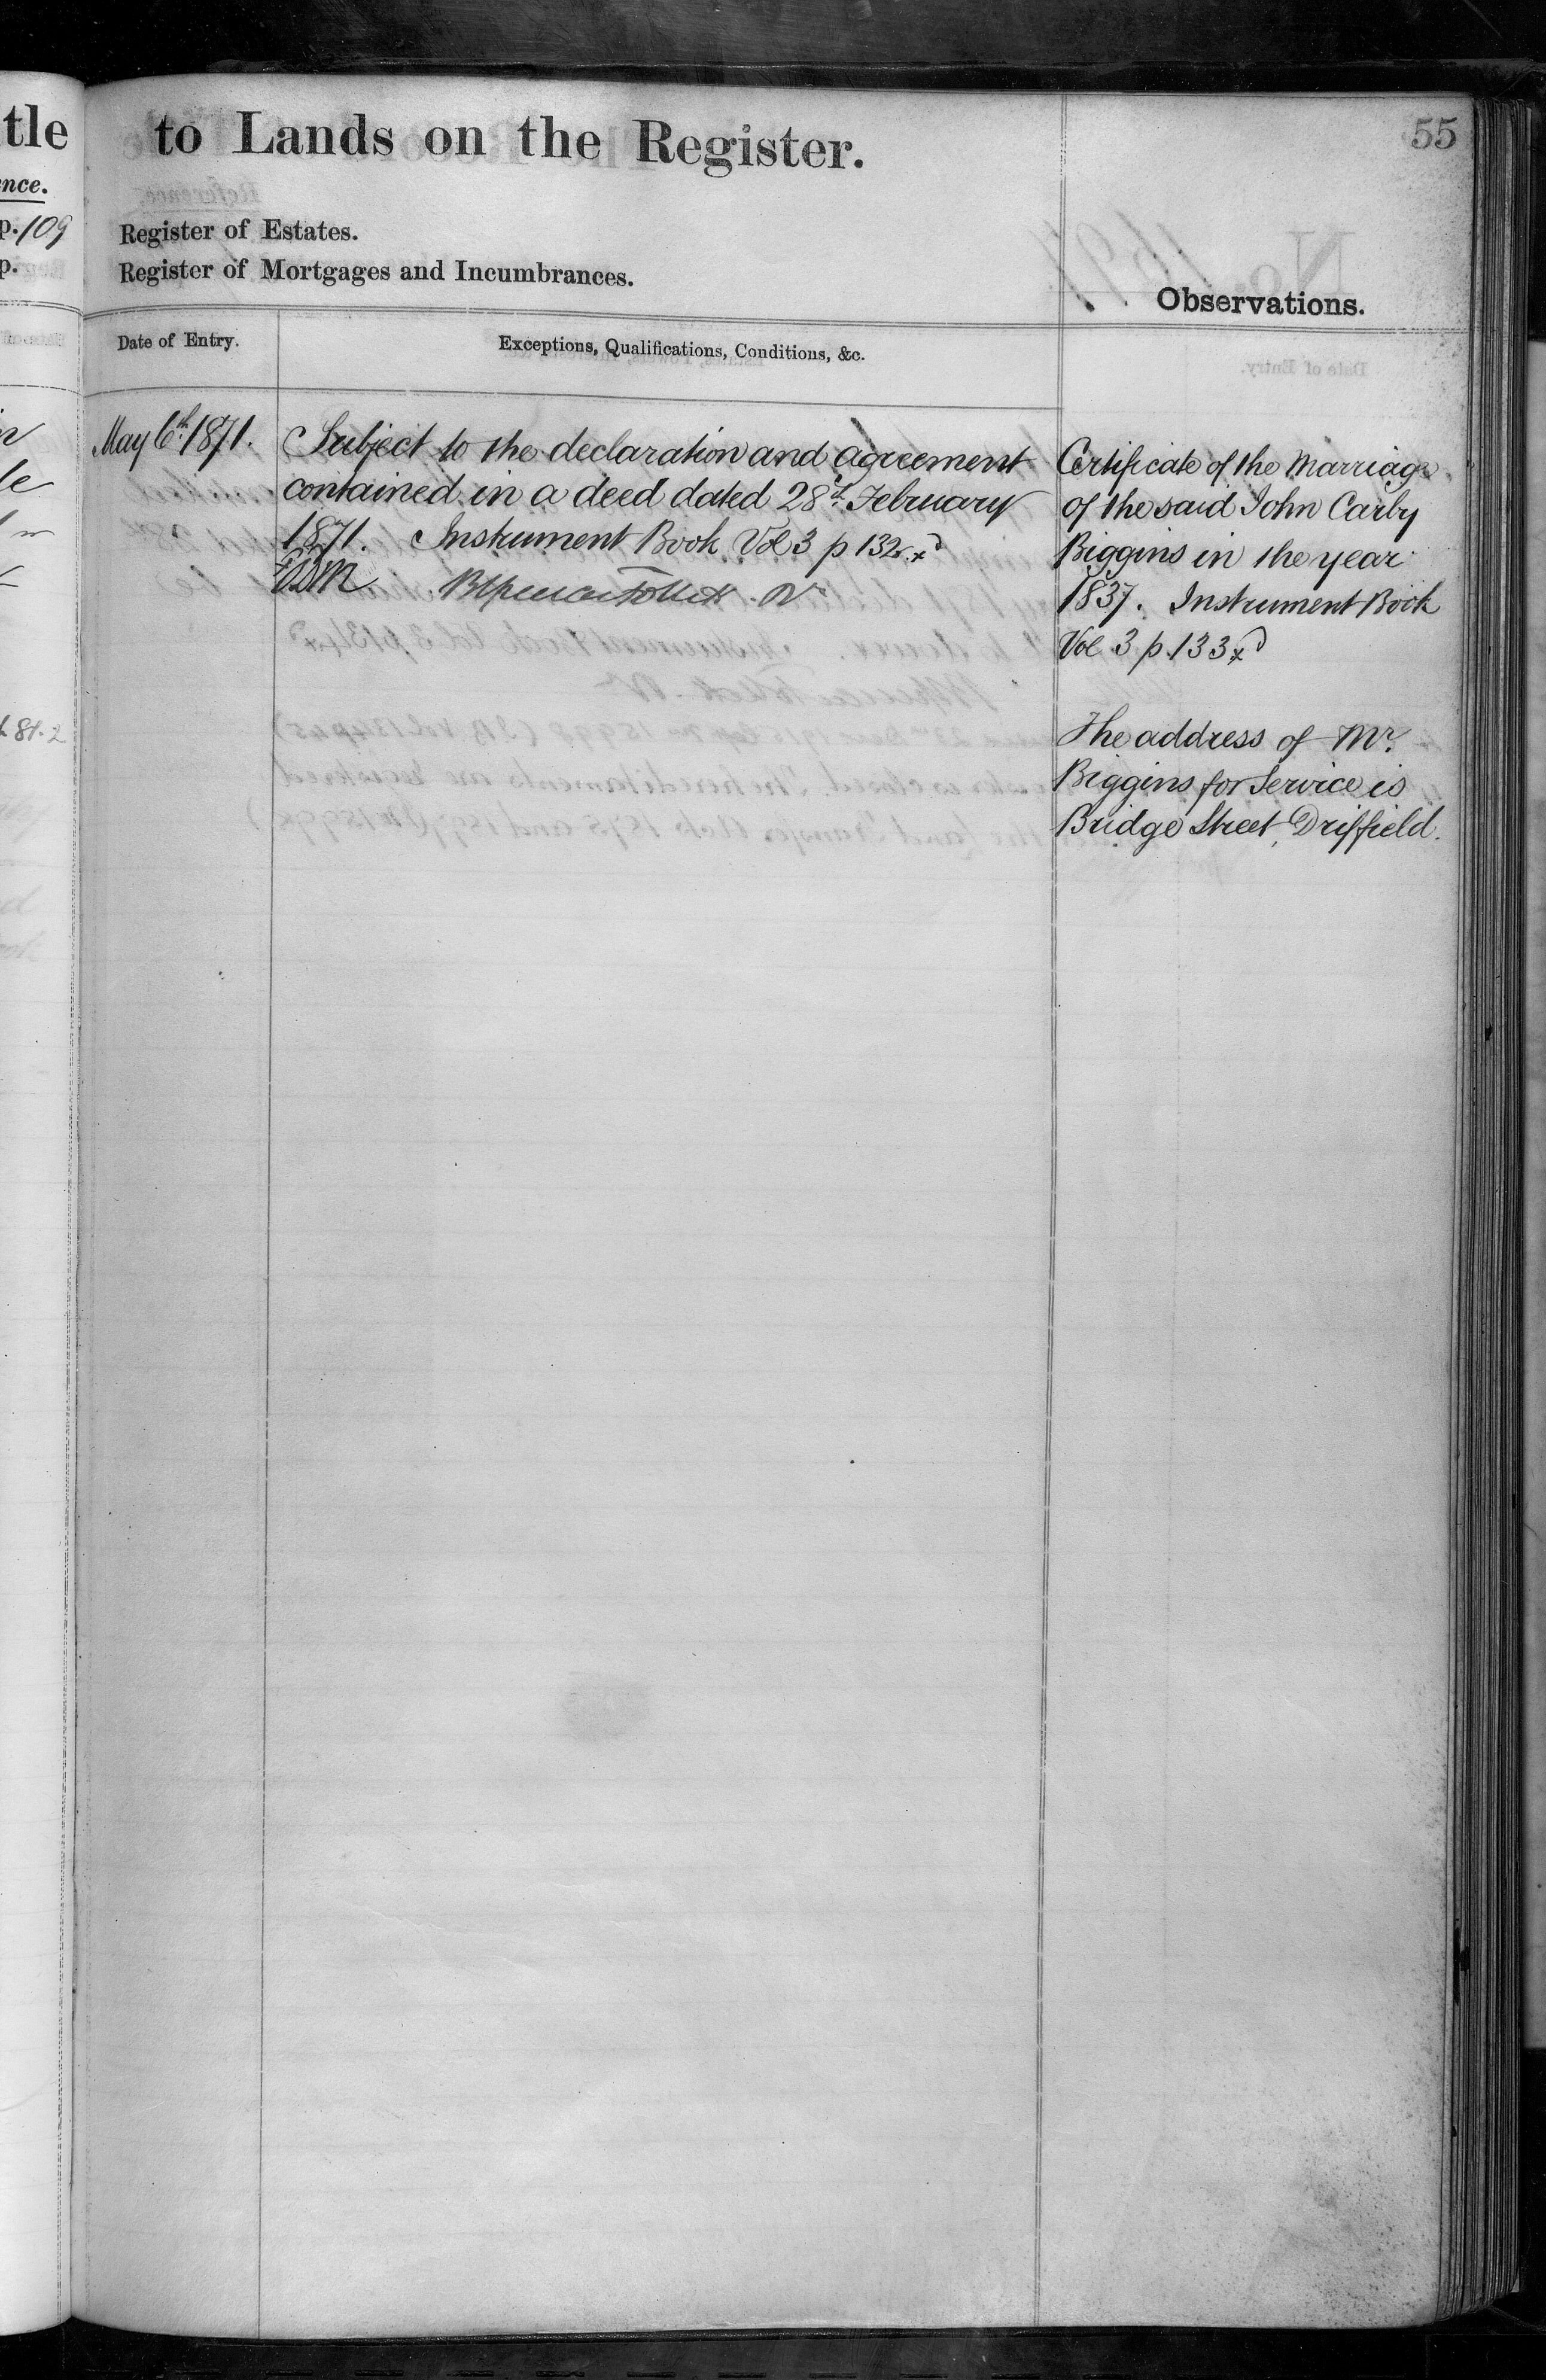 tle
to Lands on the Register.
55
nce.
p. 109
p.
Register of Estates.
Register of Mortgages and Incumbrances.
Observations.
Date of Entry.
Exceptions, Qualifications, Conditions, &c.
May 6th 1871.
Subject to the declaration and agreement
contained in a deed dated 28th February
1871. Instrument Book Vol 3 p 132
Certificate of the Marriage
of the said John Carby
Biggins in the year
1837. Instrument Book
Vol 3 p 133
The address of Mr.
Biggins for Service is
Bridge Street, Driffield.